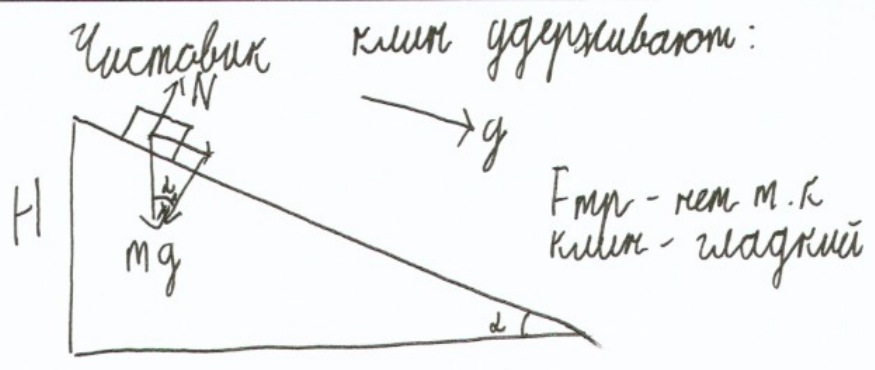 Чистовик клин удерживают:
N
y
H
α
mg
Fтр - нет т.к
клин - гладкий
α